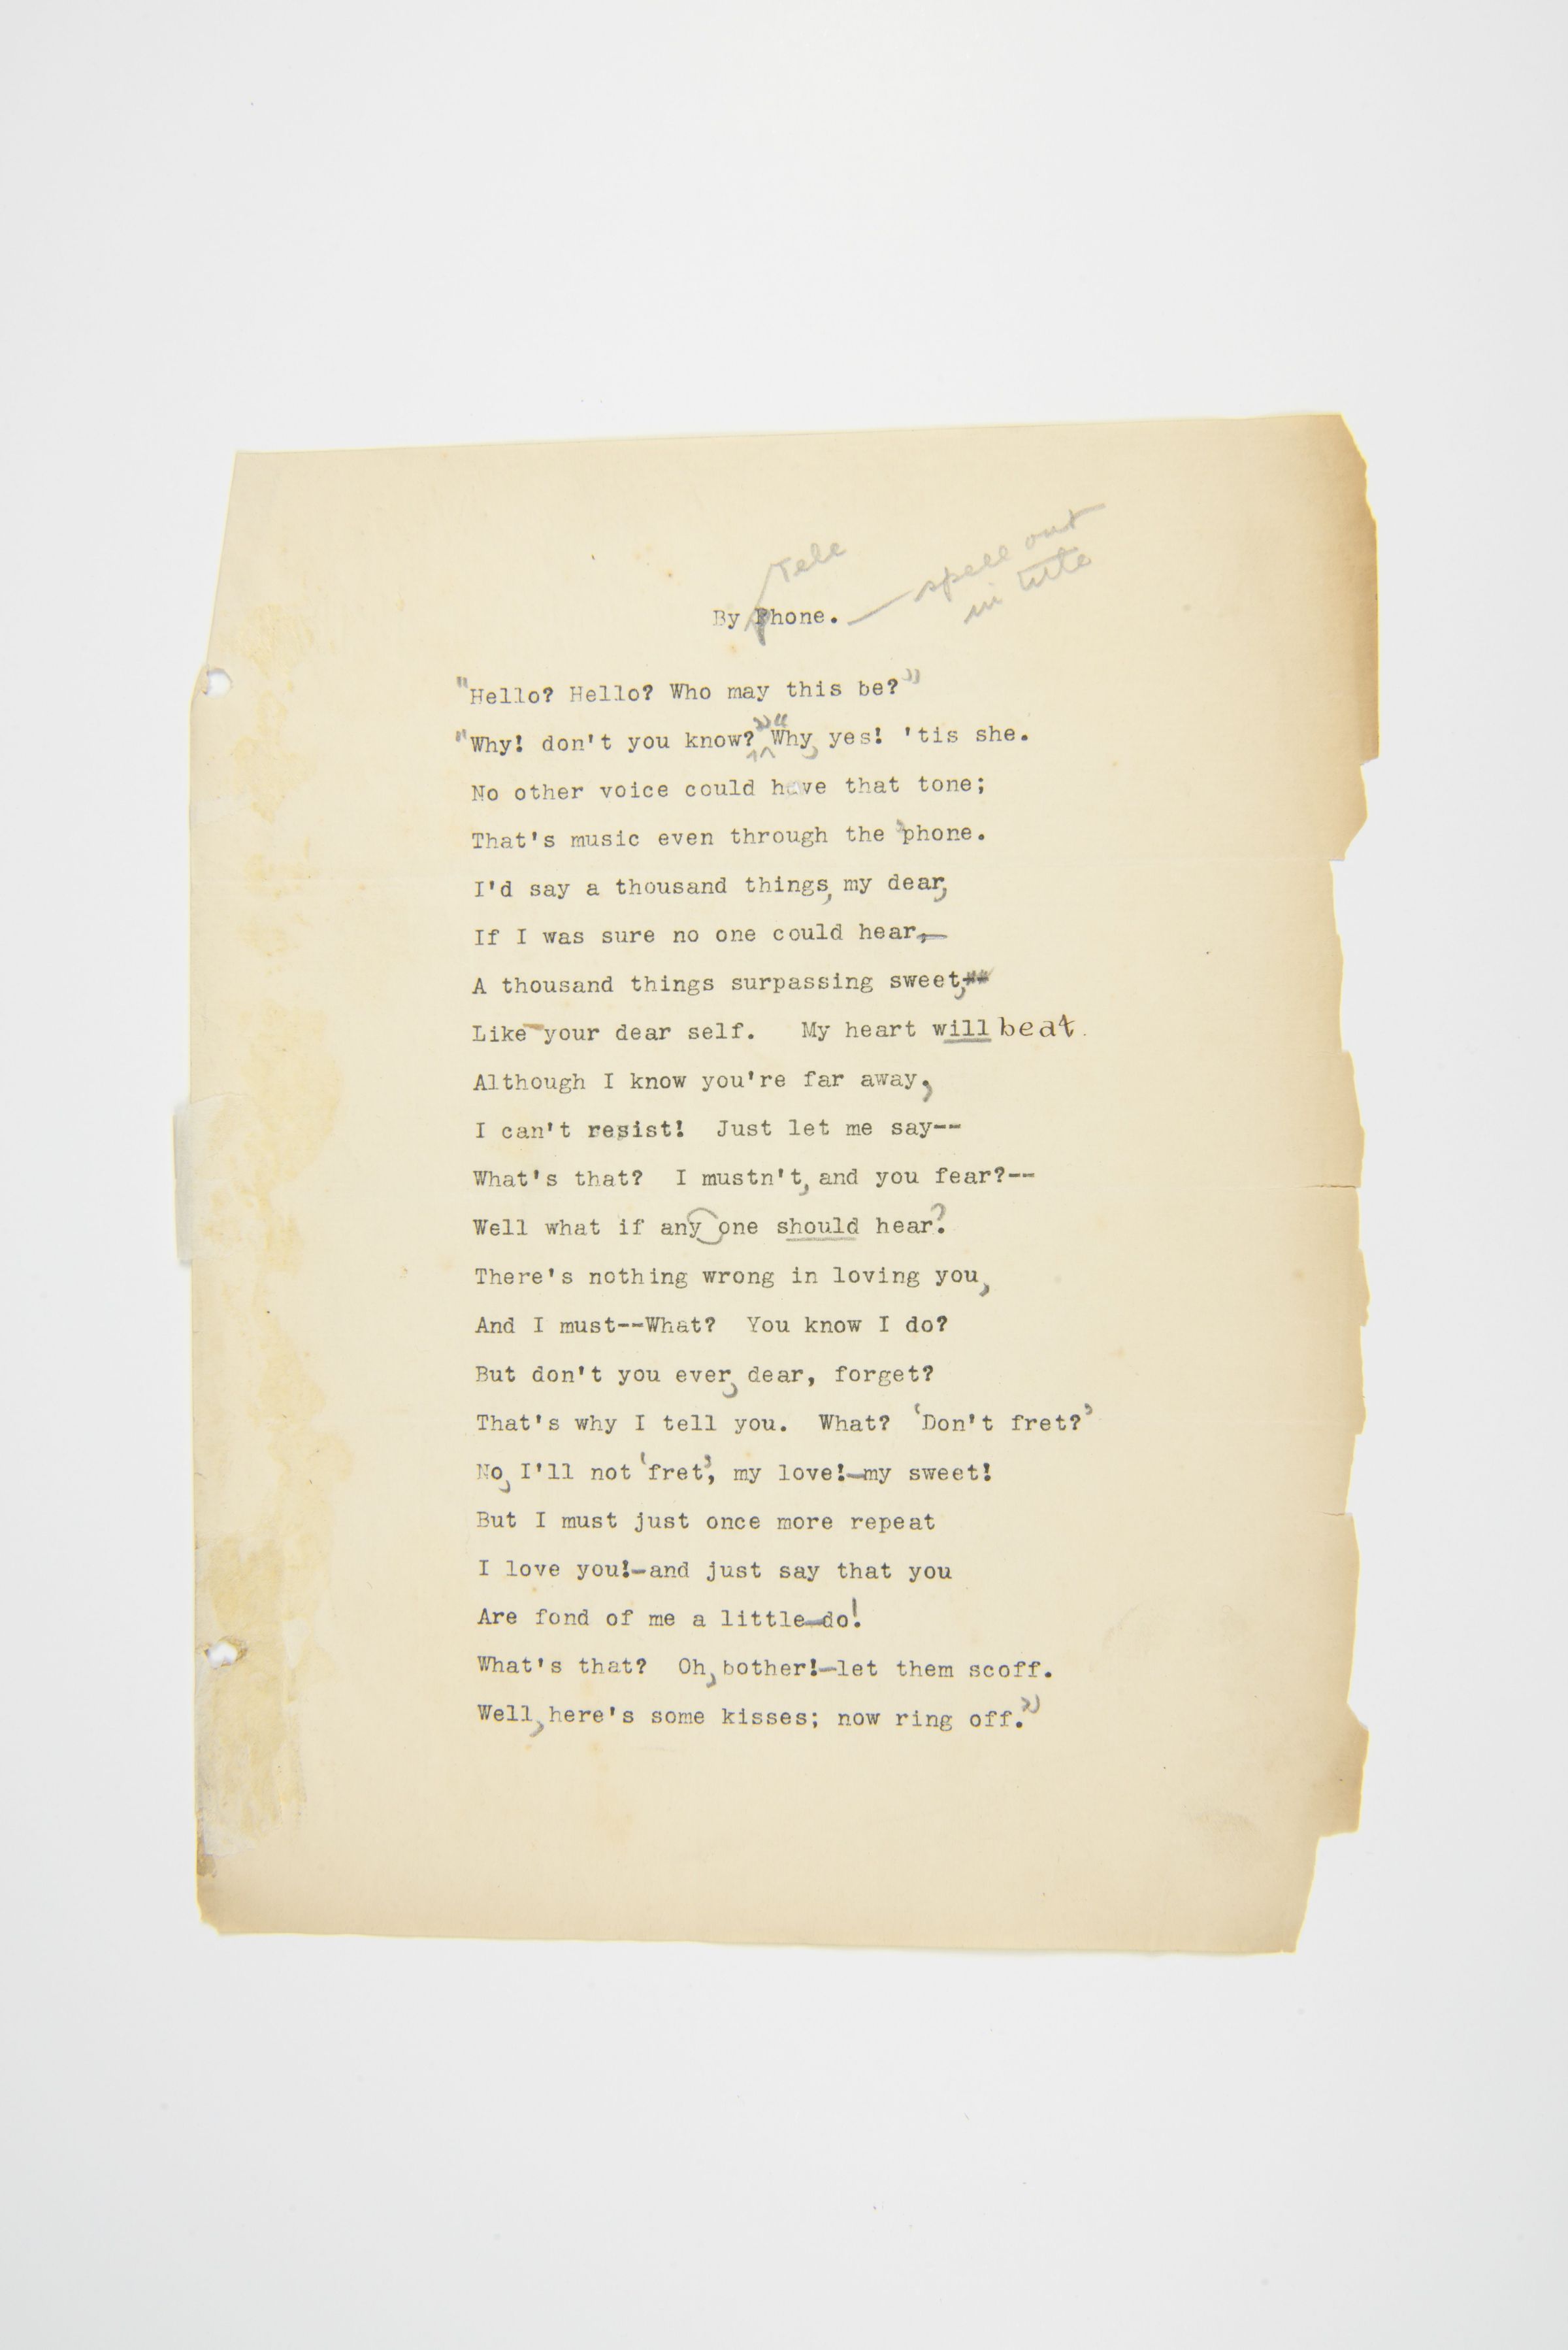 Tele
spell out
in title
By Phone.
"Hello? Hello? Who may this be?"
"Why! don't you know?" "Why, yes! 'tis she.
No other voice could have that tone;
That's music even through the 'phone.
I'd say a thousand things, my dear,
If I was sure no one could hear,—
A thousand things surpassing sweet,
Like your dear self. My heart will beat.
Although I know you're far away,
I can't resist! Just let me say--
What's that? I mustn't, and you fear?--
Well what if any one should hear?
There's nothing wrong in loving you,
And I must--What? You know I do?
But don't you ever, dear, forget?
That's why I tell you. What? 'Don't fret?'
No, I'll not 'fret', my love!—my sweet!
But I must just once more repeat
I love you!—and just say that you
Are fond of me a little—do!
What's that? Oh, bother!—let them scoff.
Well, here's some kisses; now ring off."